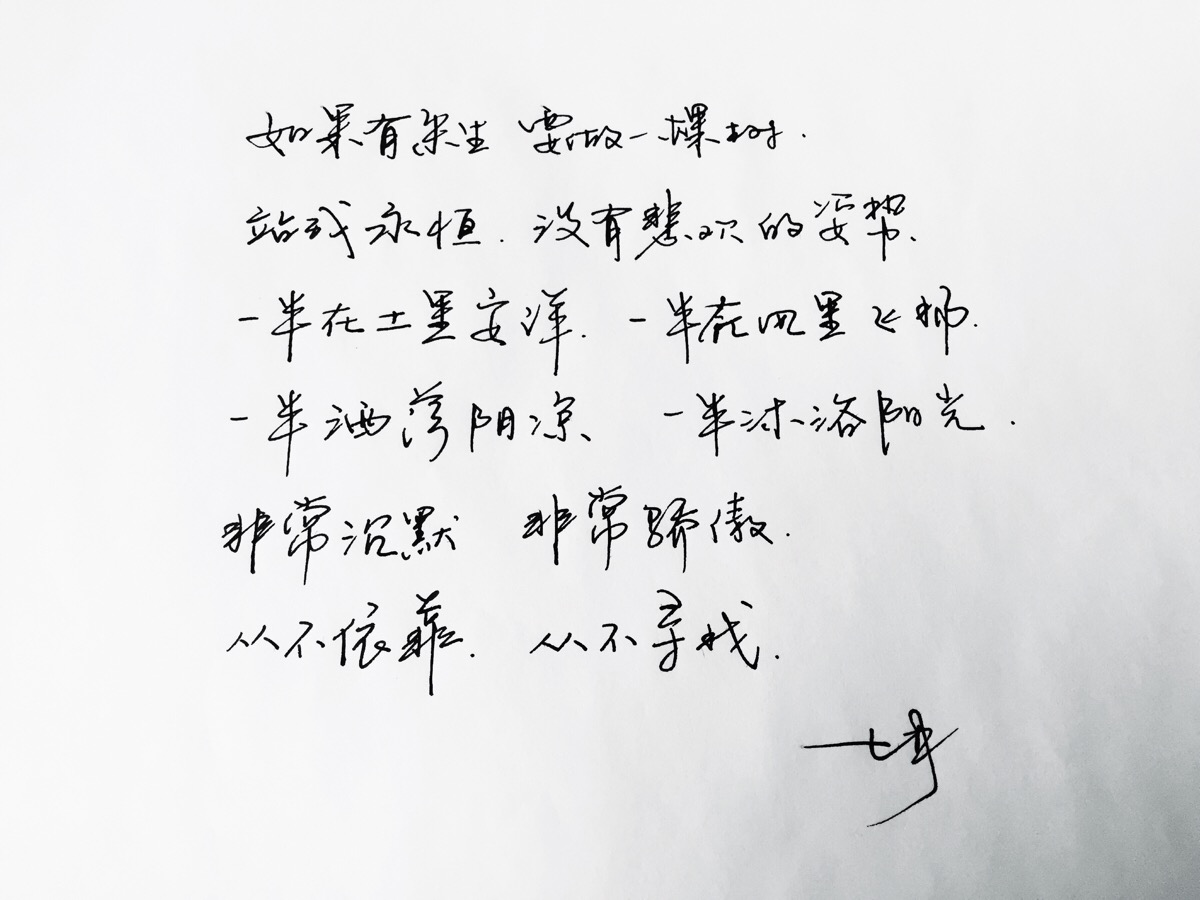 如果有来生 要做一棵树.
站成永恒. 没有悲欢的姿势.
一半在土里安详. 一半在风里飞扬.
一半洒落阴凉、 一半沐浴阳光.
非常沉默 非常骄傲.
从不依靠. 从不寻找.